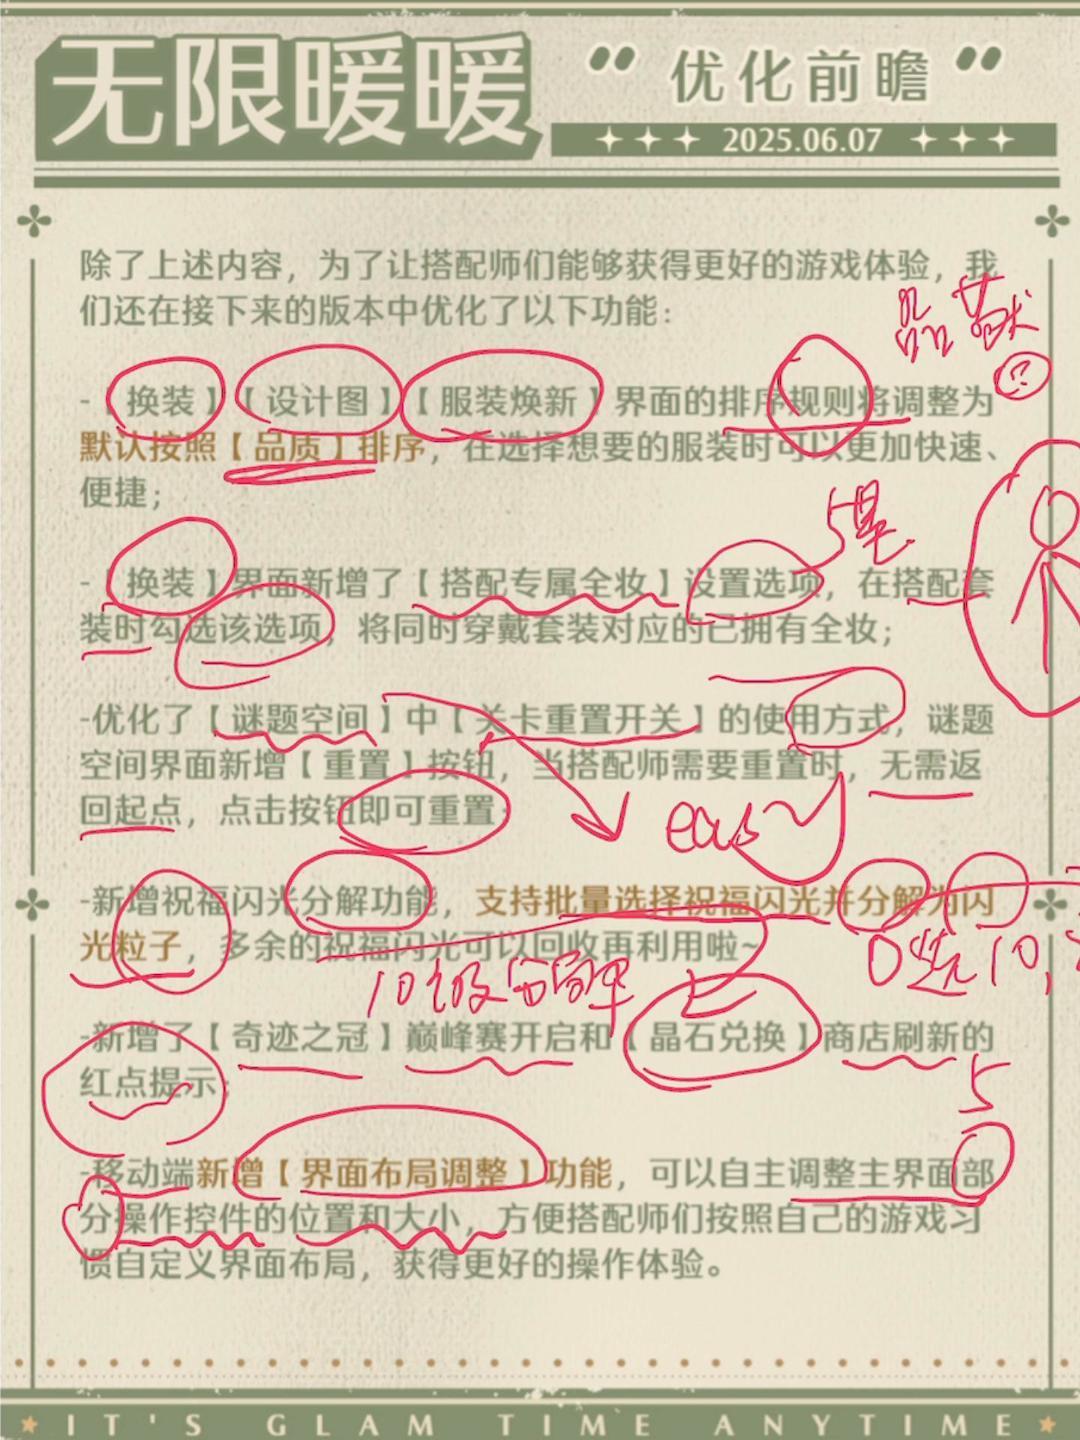 无限暖暖
优化前瞻
2025.06.07
除了上述内容，为了让搭配师们能够获得更好的游戏体验，我
们还在接下来的版本中优化了以下功能：
-【换装】【设计图】【服装焕新】界面的排序规则将调整为
默认按照【品质】排序，在选择想要的服装时可以更加快速、
便捷；
5星
-【换装】界面新增了【搭配专属全妆】设置选项，在搭配套
装时勾选该选项，将同时穿戴套装对应的已拥有全妆；
-优化了【谜题空间】中【关卡重置开关】的使用方式，谜题
空间界面新增【重置】按钮，当搭配师需要重置时，无需返
回起点，点击按钮即可重置；
easy
-新增祝福闪光分解功能，支持批量选择祝福闪光并分解为闪
光粒子，多余的祝福闪光可以回收再利用啦~
10级分解
-新增了【奇迹之冠】巅峰赛开启和【晶石兑换】商店刷新的
红点提示；
5
-移动端新增【界面布局调整】功能，可以自主调整主界面部
分操作控件的位置和大小，方便搭配师们按照自己的游戏习
惯自定义界面布局，获得更好的操作体验。
IT'S GLAM TIME ANYTIME